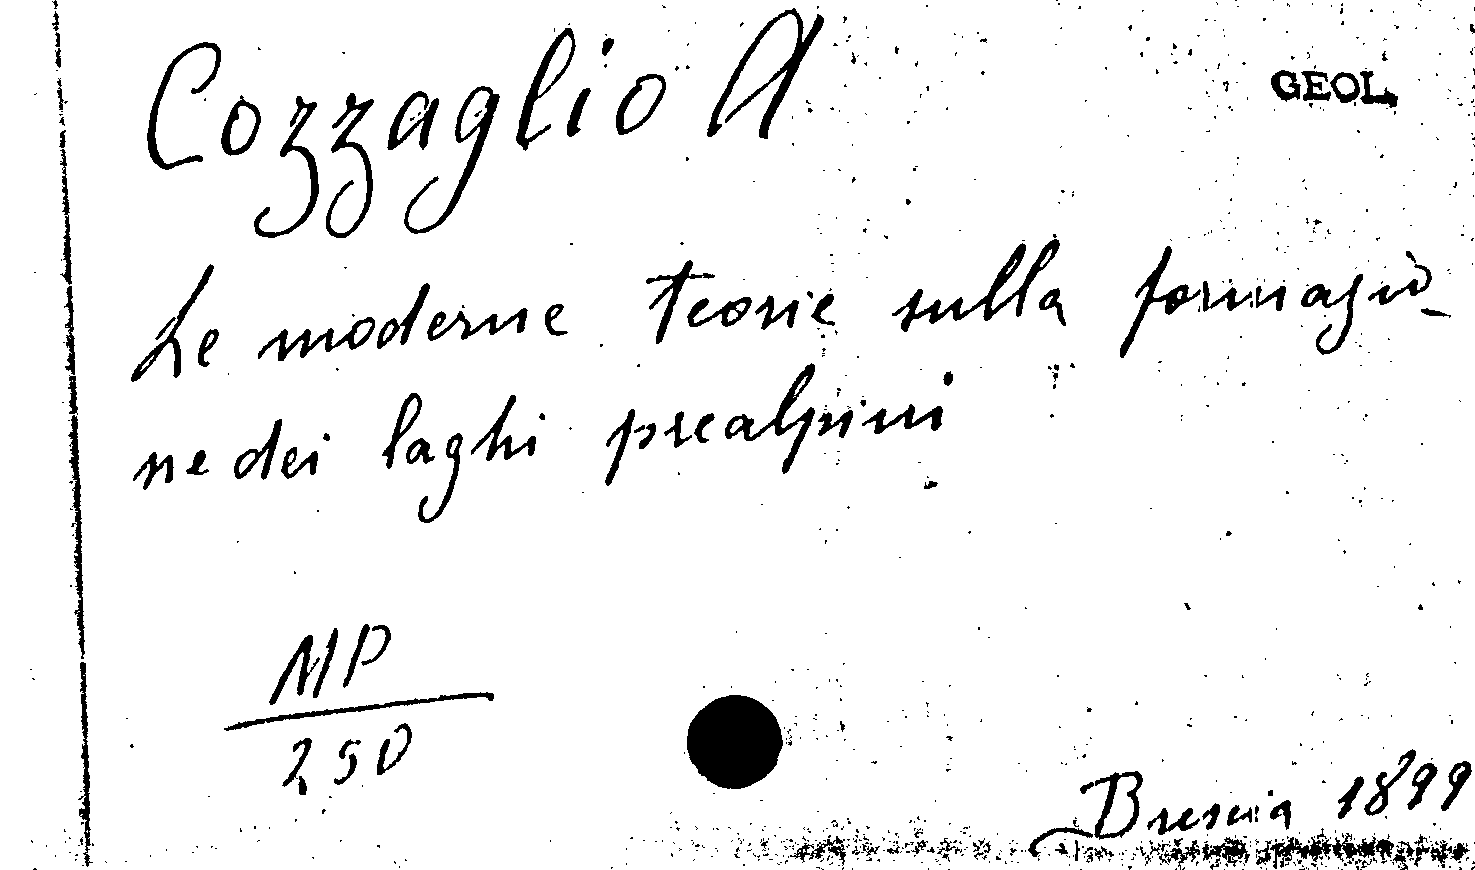 Cozzaglio A
GEOL.
Le moderne teorie sulla formazio-
ne dei laghi prealpini
MP
250
Brescia 1899